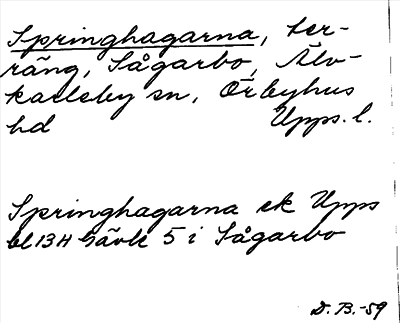 Springhagarna, ter-
räng, Sågarbo, Älv-
karleby sn, Örbyhus
hd Upps. l.
Springhagarna ek Upps
bl 13H Gävle 5 i Sågarbo
D. B.-59